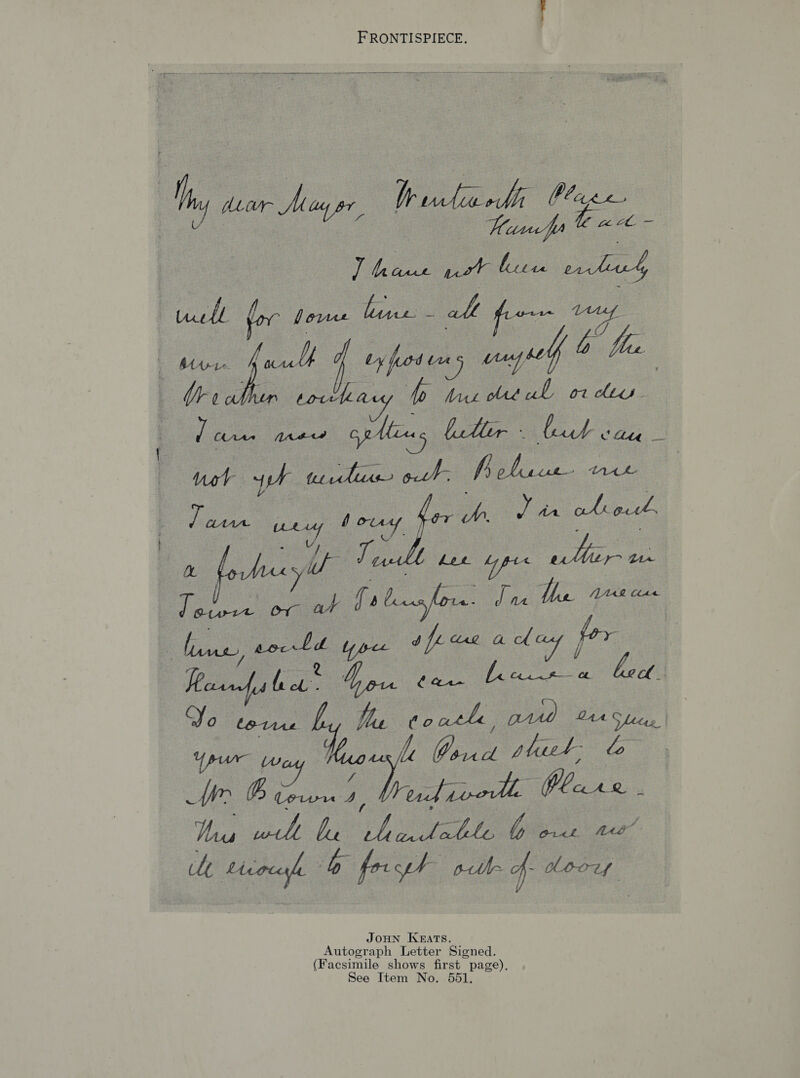 FRONTISPIECE.
My dear Mayor, Wentworth Place
Hampstead -
I have not been entirely
well for some time - all from my
own fault of exposing myself to the
Weather contrary to medical orders
I am now getting better - but can
not yet venture out. Believe me
I am very sorry for it. In about
a fortnight I will see you either in
Town or at Islington. In the mean
time, could you spare a day for
Hampstead? You can have a bed.
So come by the coach, and enquire
your way through Pond street, to
Mr Brown's, Wentworth Place.
This will be charitable to one not
ill enough to forget out of doors
JOHN KEATS.
Autograph Letter Signed.
(Facsimile shows first page).
See Item No. 551.